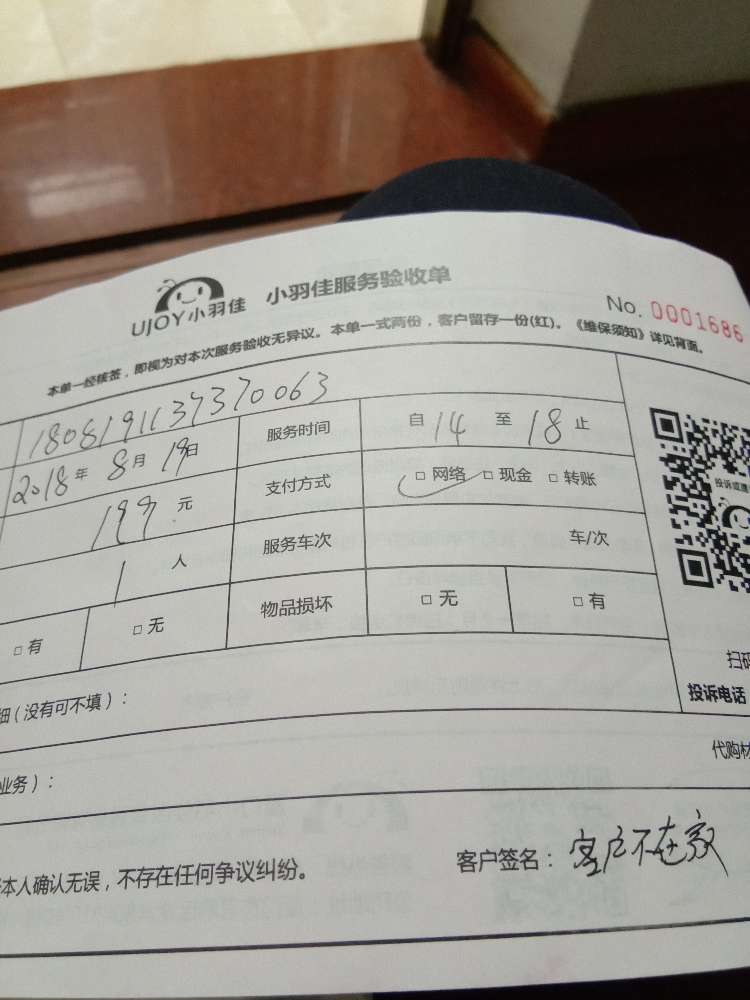 UJOY小羽佳 小羽佳服务验收单
No. 0001686
本单一经核签，即视为对本次服务验收无异议。本单一式两份，客户留存一份(红)。《维保须知》详见背面。
服务时间 自14至18止
2018年8月19日
支付方式 □网络 □现金 □转账
199元
服务车次 车/次
1人
物品损坏 □无 □有
□有 □无
细（没有可不填）：
扫码
投诉电话
业务）：
代购材
本人确认无误，不存在任何争议纠纷。
客户签名：客户不在家